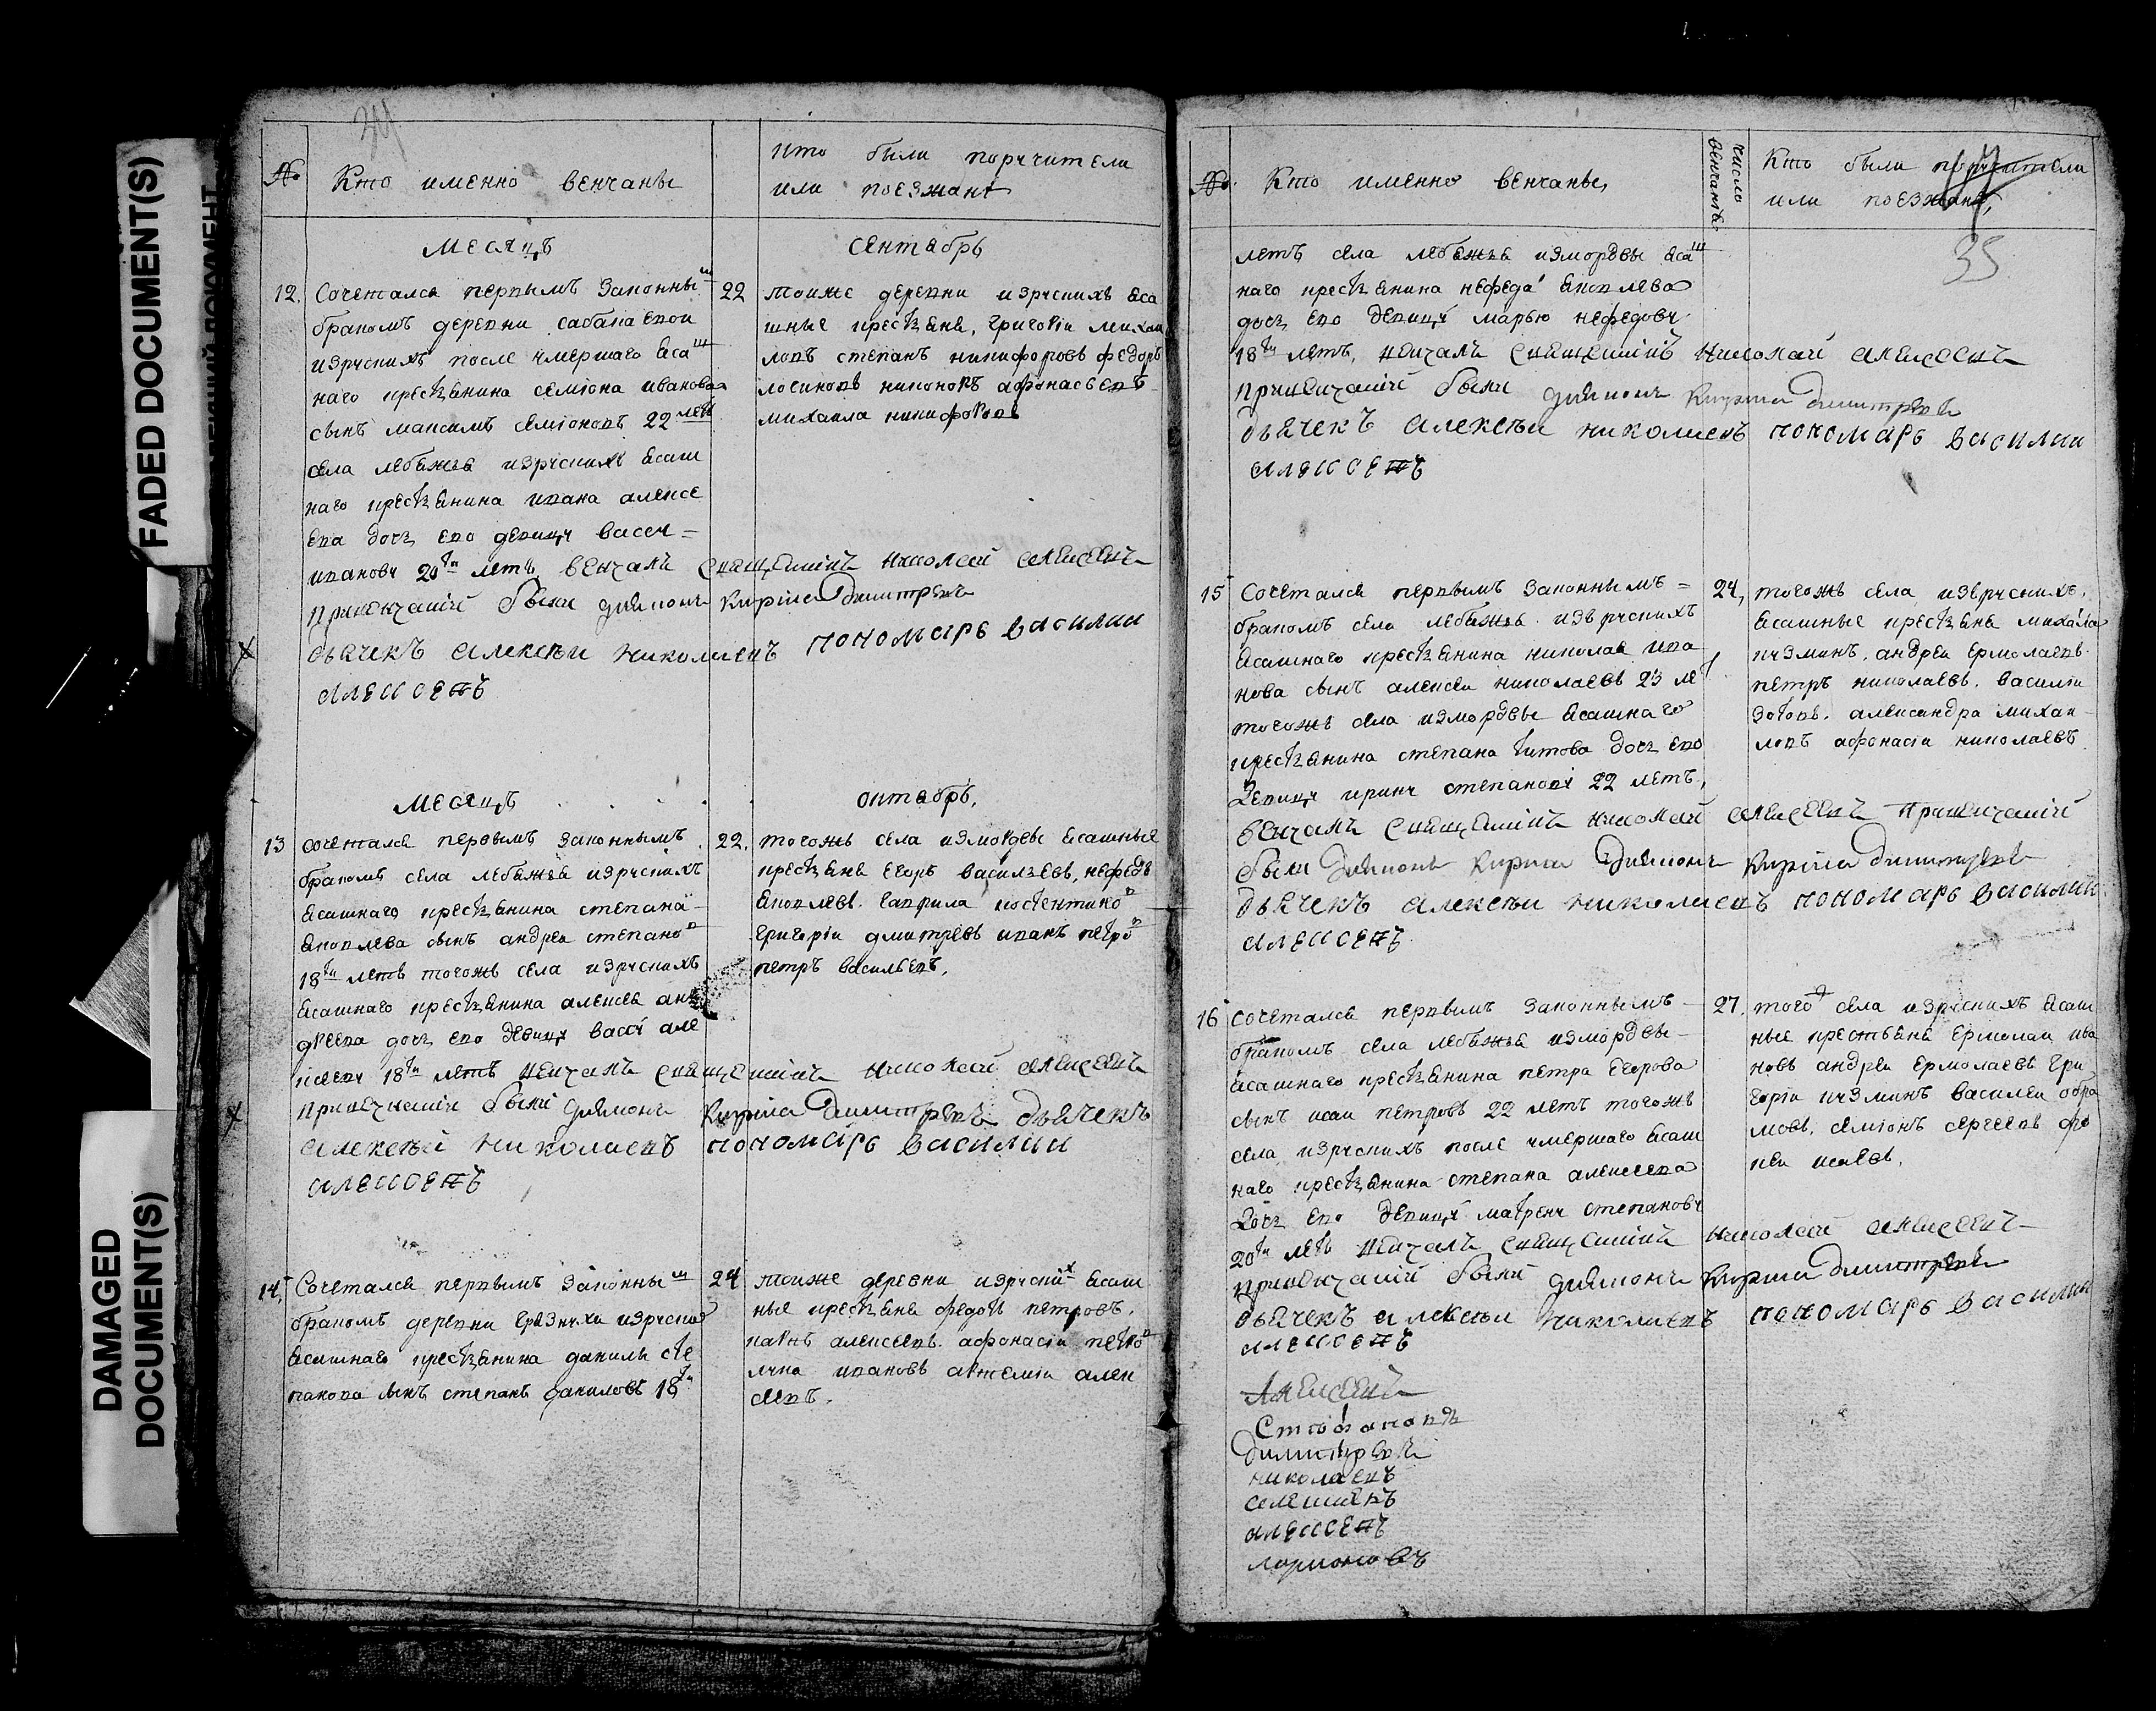 FADED DOCUMENT(S)
DAMAGED
DOCUMENT(S)
34
№
Кто именно венчаны
кто были поручители
или поезжанѣ
Месяцъ
сентябрь
12. Сочетался первымъ законны
бракомъ деревни сабакаевои
изрускихъ после умершаго Ясаш
наго крестьянина семiона иванова
сынъ максимъ семiоновъ 22 летъ
села лебяжья изрускихъ Ясаш
наго крестьянина ивана алексе
ева дочь ево девицу вассу
иванову 20ти летъ венчалъ священникъ николай алексеевъ
привенчанiи были диаконъ Кирила Димитревъ
дьячекъ алексѣи николаевъ пономарь василии
алексеевъ
22 тоиже деревни изрускихъ Яса
шные крестьяне, григорiи михаи
ловъ степанъ никифоровъ федоръ
логиновъ никоноръ афонасьевъ
михаила никифоровъ
Месяцъ
октябрь,
13 сочетался первымъ законнымъ
бракомъ села лебяжья изрускихъ
Ясашнаго крестьянина степана
Яковлева сынъ андреи степановъ
18ти летъ тогожъ села изрускихъ
Ясашнаго крестьянина алексея ан
дреева дочь ево девицу вассу але
ксееву 18ти летъ венчалъ священникъ николай алексеевъ
привенчанiи были диаконъ Кирила Димитревъ дьячекъ
алексѣй николаевъ пономарь василии
алексеевъ
22. тогожъ села измордвы Ясашные
крестьяне Егоръ васильевъ, нефедъ
Яковлевъ. гаврила
григорiи дмитревъ иванъ петровъ
петръ васильевъ.
14. Сочетался первымъ законны
бракомъ деревни грязнухи изруски
Ясашнаго крестьянина данилы сте
панова сынъ степанъ даниловъ 18ти
24 тоиже деревни изрускихъ Ясаш
ные крестьяне федотъ петровъ.
алексеевъ. афонасiи петровъ
лука ивановъ артемiи алек
сеевъ.
№.
Кто именно венчаны,
число
венчанѣ.
Кто были поручители
или поезжанѣ,
35
летъ села лебяжья измордвы Ясаш
наго крестьянина нефеда Яковлева
дочь ево девицу марью нефедову
18ти летъ, венчалъ священникъ николай алексеевъ
привенчанiи были диаконъ Кирила Димитревъ
дьячекъ алексѣи николаевъ пономарь василии
алексеевъ
15 Сочетался первымъ законнымъ
бракомъ села лебяжья изврускихъ
Ясашнаго крестьянина николая ива
нова сынъ алексеи николаевъ 23 ле
тогожъ села измордвы Ясашнаго
крестьянина степана титова дочь ево
девицу ирину степанову 22 летъ,
венчалъ священникъ николай алексеевъ привенчанiи
были Диаконъ Кирила Диаконъ Кирила Димитревъ
дьячекъ алексѣи николаевъ пономарь василии
алексеевъ.
24, тогожъ села, извруских.
Ясашные крестьяне михаила
кузминъ, андреи Ермолаевъ.
петръ николаевъ. василiи
зотовъ. александра михаи
ловъ афонасiи николаевъ
16 сочетался первымъ законнымъ
бракомъ села лебяжья измордвы
Ясашнаго крестьянина петра Егорова
сынъ исаи петровъ 22 летъ тогожъ
села изрускихъ после умершаго Ясаш
наго крестьянина степана алексеева
дочь ево девицу матрену степанову
20ти летъ венчалъ священникъ николай алексеевъ
привенчанiи были диаконъ Кирила Димитревъ
дьячекъ алексѣи николаевъ пономарь василии
алексеевъ
27. того села изрускихъ Ясаш
ные крестьяне Ермолаи ива
новъ андреи Ермолаевъ гри
горiи кузминъ василеи абра
мовъ. семiонъ сергеевъ
исаевъ.
Алексеевъ
Стефановъ
Димитревъ
николаевъ
алексеевъ